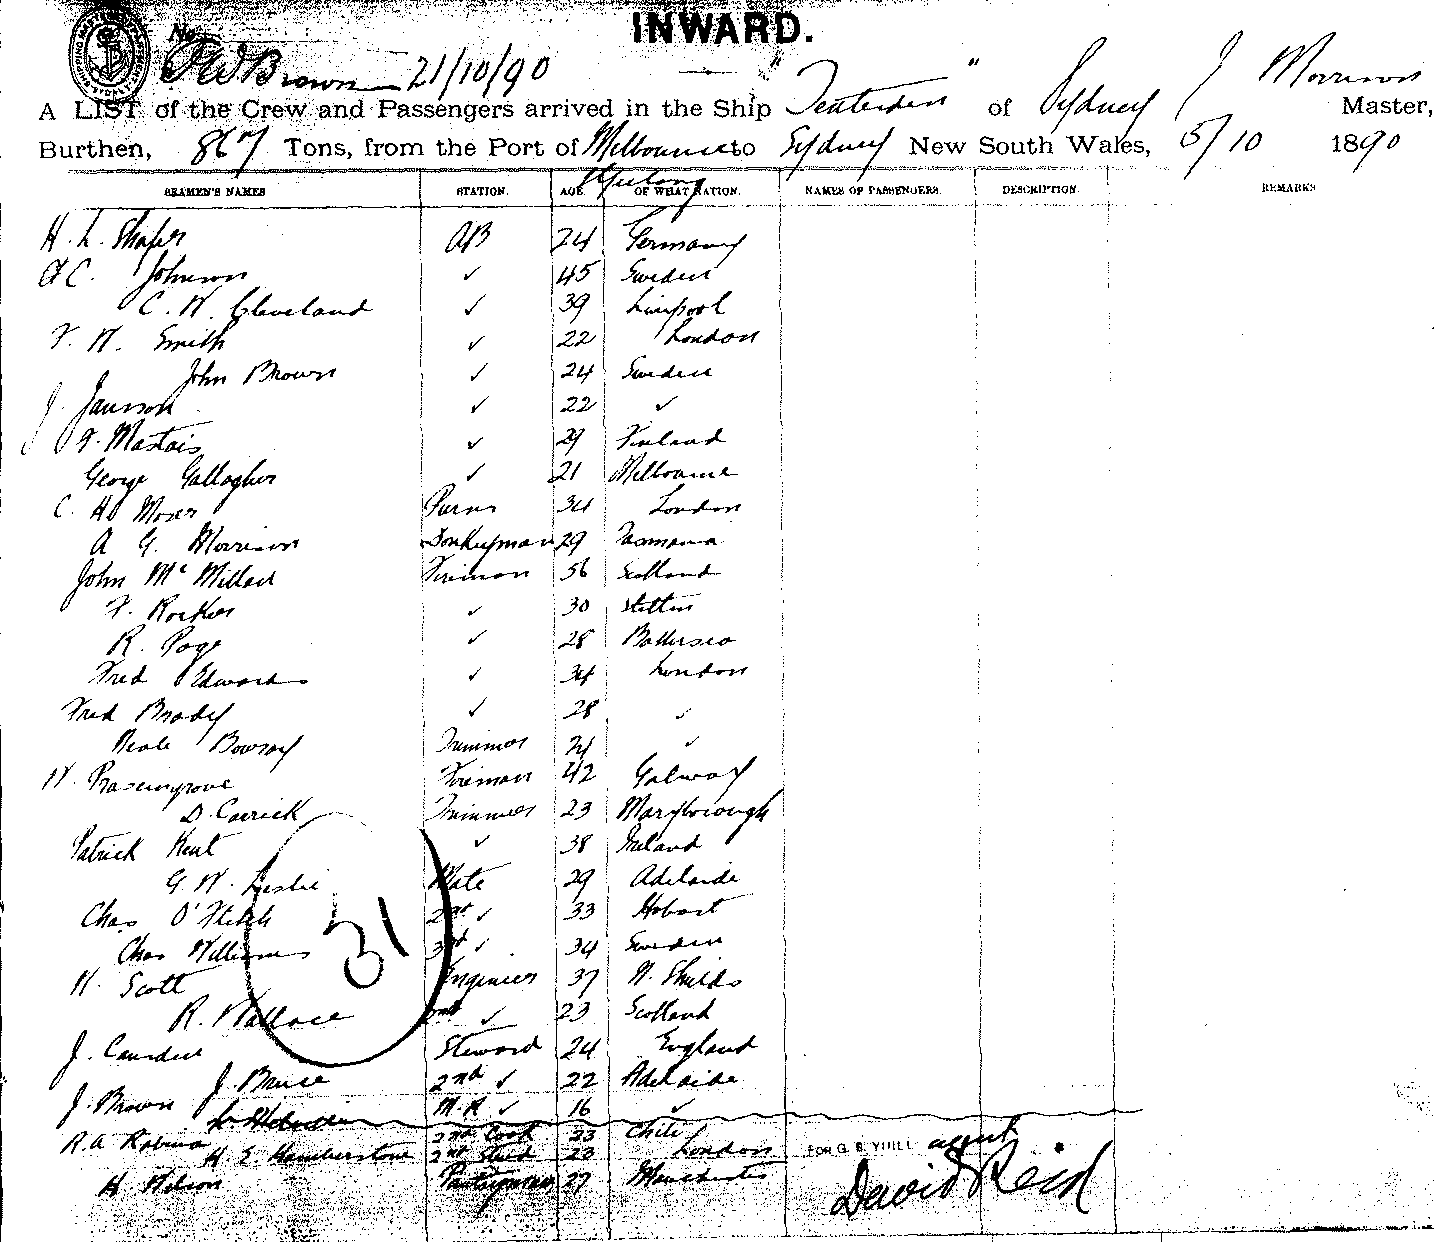 INWARD.
No.
21/10/90
A LIST of the Crew and Passengers arrived in the Ship "Tenterden" of Sydney J Morrison Master,
Burthen, 867 Tons, from the Port of Melbourne to Sydney New South Wales, 5/10 1890
Geelong
SEAMEN'S NAMES STATION. AGE. OF WHAT NATION. NAMES OF PASSENGERS. DESCRIPTION. REMARKS
H. L. Shafer AB 24 Germany
C. Johnson ✓ 45 Sweden
C. W. Cleveland ✓ 39 Liverpool
F. W. Smith ✓ 22 London
John Brown ✓ 24 Sweden
J. Jansson ✓ 22 ✓
F. Mattais ✓ 29 Finland
George Gallagher ✓ 21 Melbourne
C. H. Moser 34 London
A G. Morrison Donkeyman 29 Tasmania
John McMillan Fireman 56 Scotland
F. ✓ 30 Stettin
R. Page ✓ 28 Battersea
Fred Edwards ✓ 34 London
Fred Brady ✓ 28 ✓
Trimmer ✓
W. Fireman 42 Galway
D. Carrick Trimmer 23 Maryborough
Patrick Kent ✓ 38 Ireland
G. W. Leslie Mate 29 Adelaide
Chas 2nd ✓ 33 Hobart
Chas Williams 3rd ✓ 34 Sweden
W. Scott Engineer 37 N. Shields
R. Wallace 2nd ✓ 23 Scotland
31
J. Steward 24 England
J. Bruce 2nd ✓ 22 Adelaide
J. Brown M.R ✓ 16 ✓
R.A. 2nd Cook 23 Chili
H. E. Humberstone 2nd Stwd 23 London
H. Wilson Pantryman 27 Manchester
FOR G. S. YUILL agent
David Reid